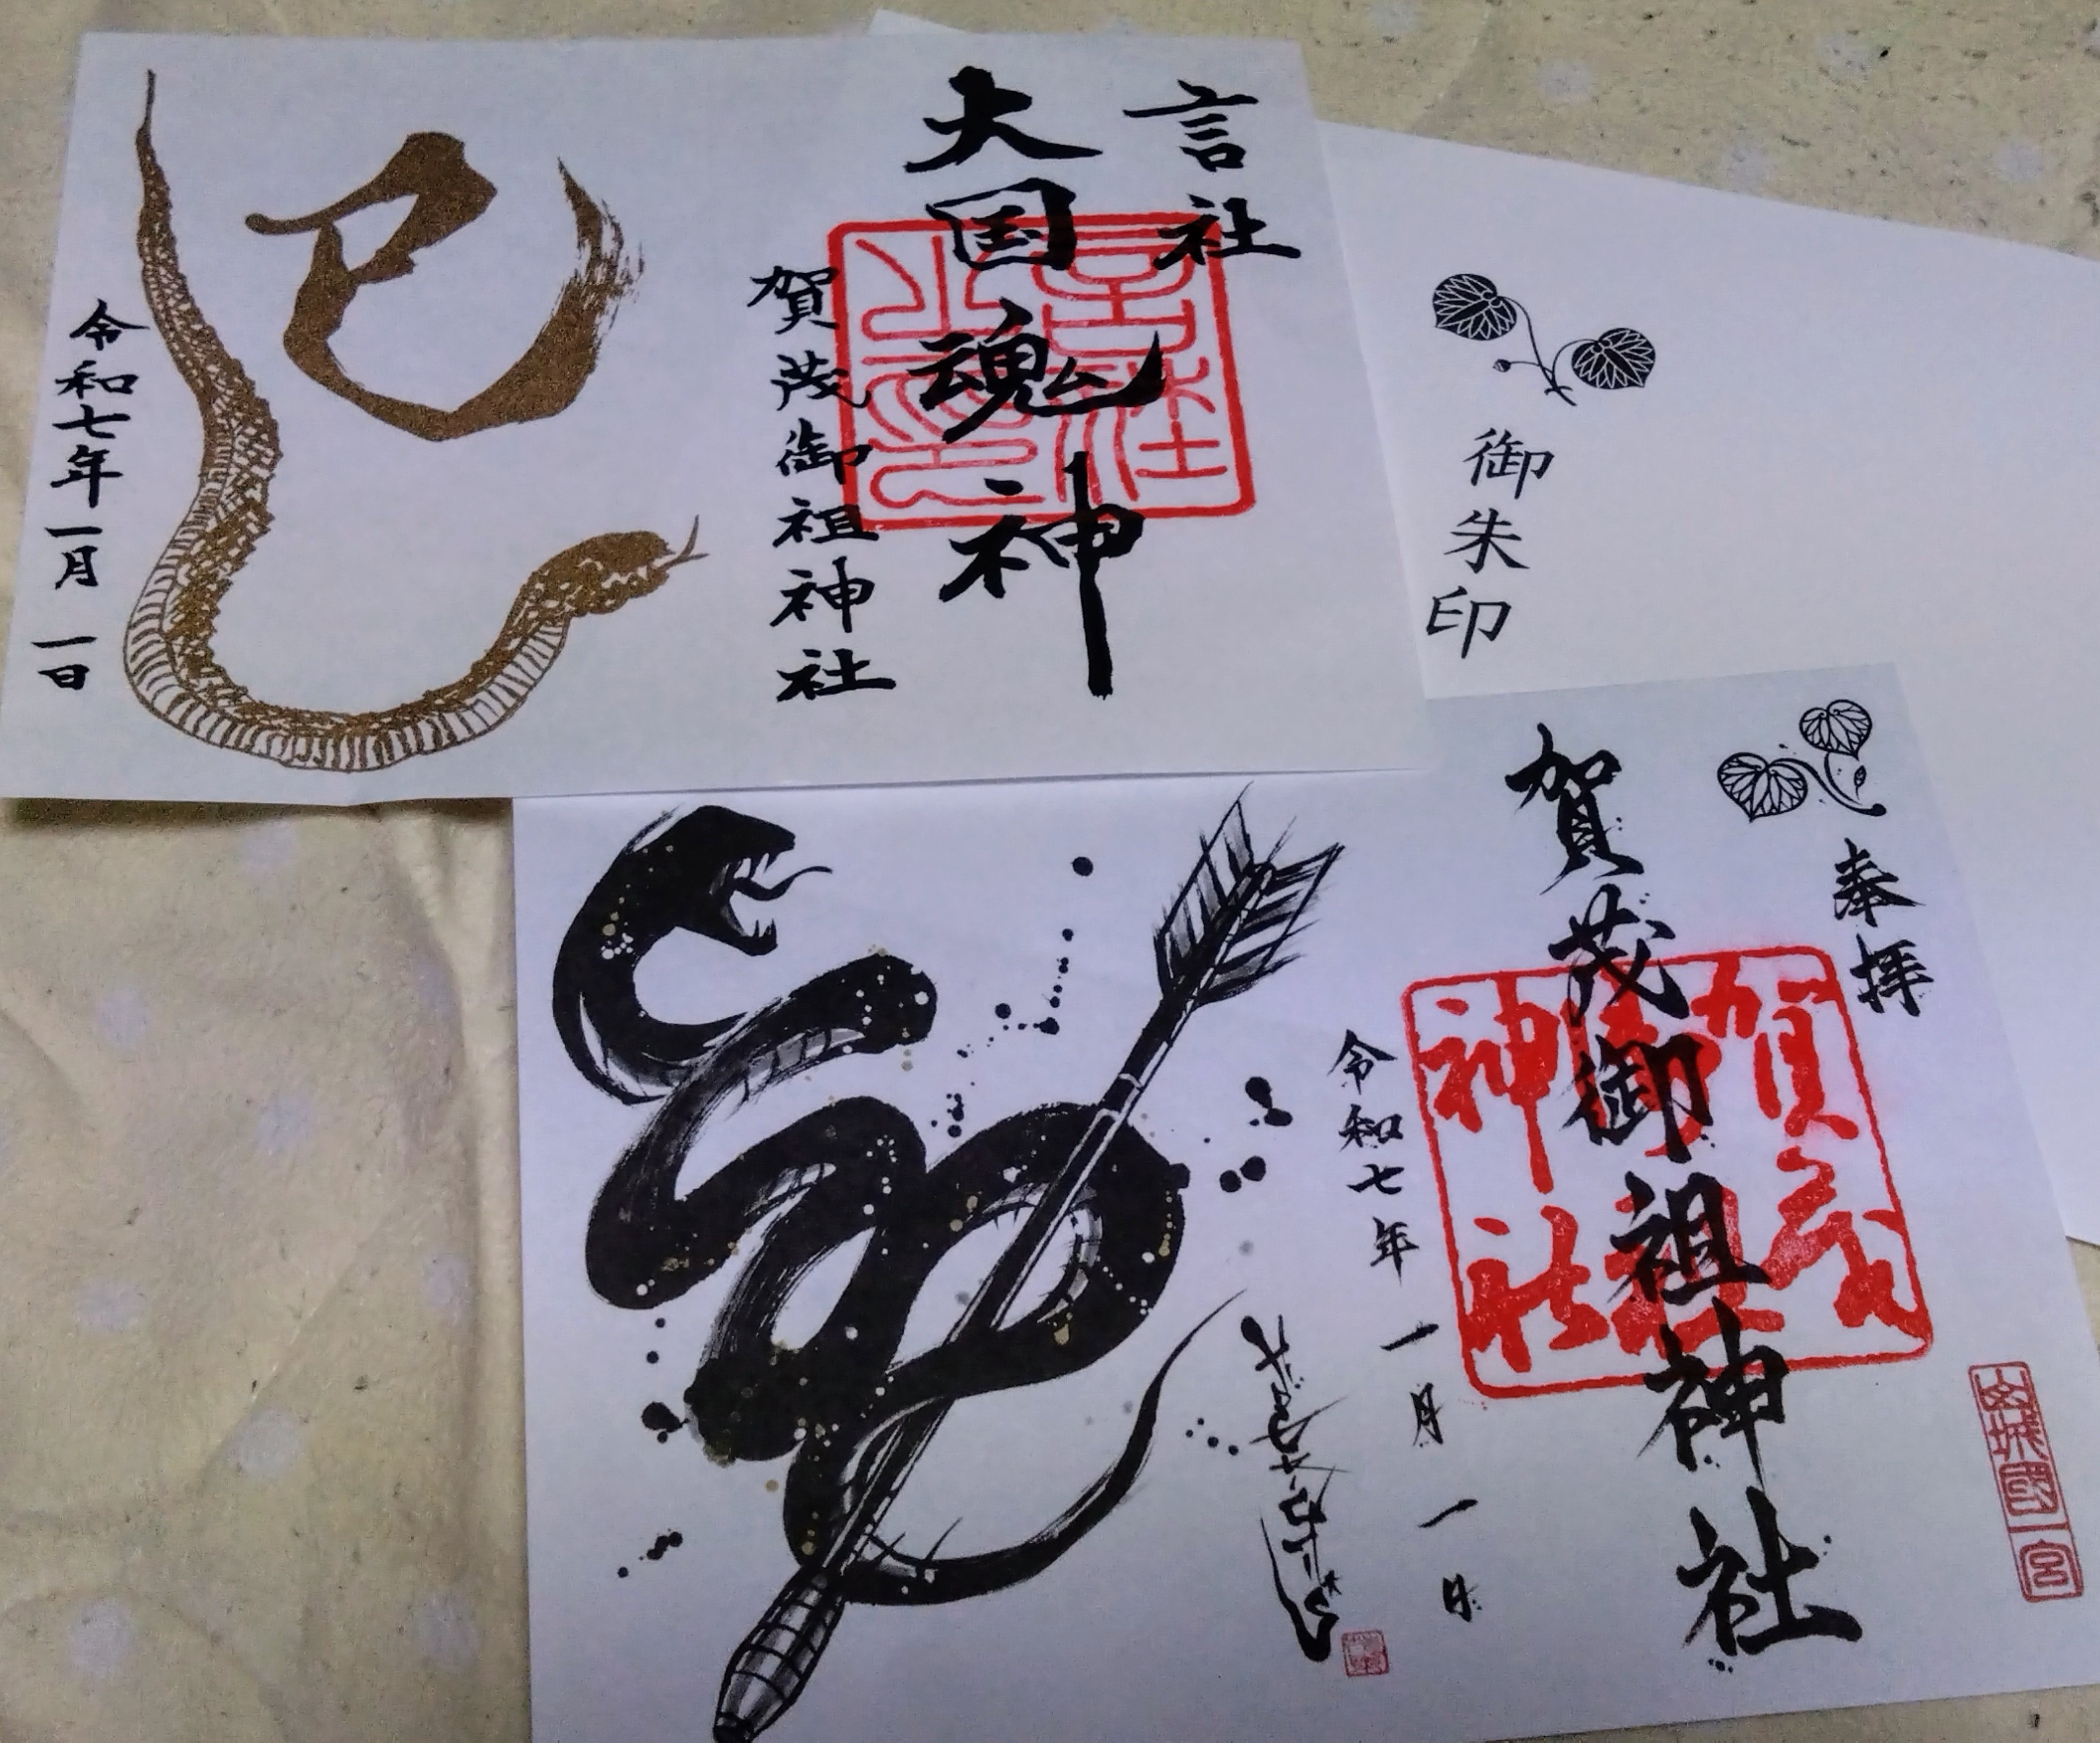 言社
大国魂神
賀茂御祖神社
巳
令和七年一月一日
言社之印
御朱印
奉拝
賀茂御祖神社
賀茂御祖神社
令和七年一月一日
山城國一宮